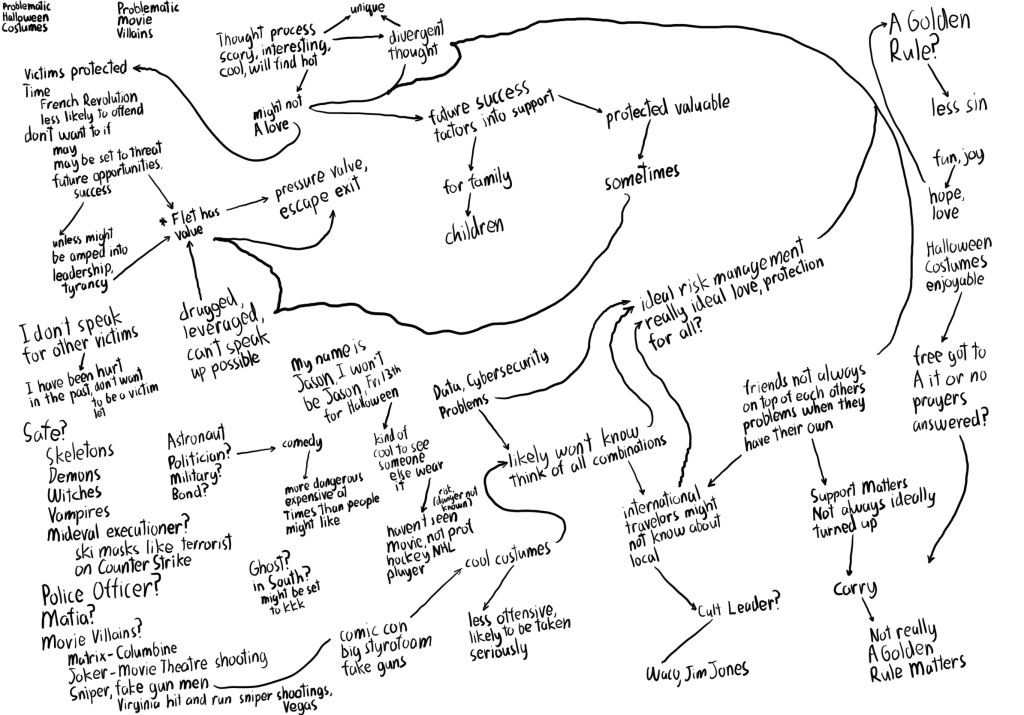 Problematic
Halloween
Costumes
Problematic
Movie
Villains
Thought process
scary, interesting,
cool, will find hot
unique
divergent
thought
might not
A love
Victims protected
Time
French Revolution
less likely to offend
don't want to if
may
may be set to threat
future opportunities,
success
unless might
be amped into
leadership,
tyrancy
* Flet has
value
pressure valve,
escape exit
drugged,
leveraged,
can't speak
up possible
I don't speak
for other victims
I have been hurt
in the past, don't want
to be a victim
let
future success
factors into support
for family
children
protected valuable
sometimes
ideal risk management
really ideal love, protection
for all?
A Golden
Rule?
less sin
fun, joy
hope,
love
Halloween
Costumes
enjoyable
free got to
A it or no
prayers
answered?
My name is
Jason, I won't
be Jason, Fri, 13th
for Halloween
kind of
cool to see
someone
else wear
it
risk,
(danger not
known)
haven't seen
movie, not prot
hockey NHL
player
Data, Cybersecurity
Problems
likely won't know
think of all combinations
friends not always
on top of each others
problems when they
have their own
international
travelors might
not know about
local
Support Matters
Not always ideally
turned up
carry
Not really
A Golden
Rule Matters
Cult Leader?
Waco, Jim Jones
Safe?
Skeletons
Demons
Witches
Vampires
Mideval executioner?
ski masks like terrorist
on Counter Strike
Police Officer?
Mafia?
Movie Villains?
Matrix-Columbine
Joker-Movie Theatre shooting
Sniper, fake gun men
Virginia hit and run sniper shootings,
Vegas
Astronaut
Politician?
Military?
Bond?
comedy
more dangerous
expensive at
times than people
might like
Ghost?
in South?
might be set
to KKK
comic con
big styrofoam
fake guns
cool costumes
less offensive,
likely to be taken
seriously